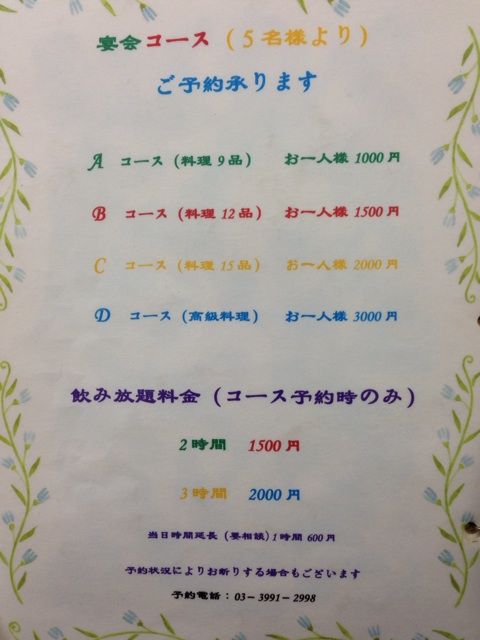 宴会コース(5名様より)
ご予約承ります
A コース(料理9品) お一人様1000円
B コース(料理12品) お一人様1500円
C コース(料理15品) お一人様2000円
D コース(高級料理) お一人様3000円
飲み放題料金(コース予約時のみ)
2時間 1500円
3時間 2000円
当日時間延長(要相談)1時間600円
予約状況によりお断りする場合もございます
予約電話:03-3991-2998